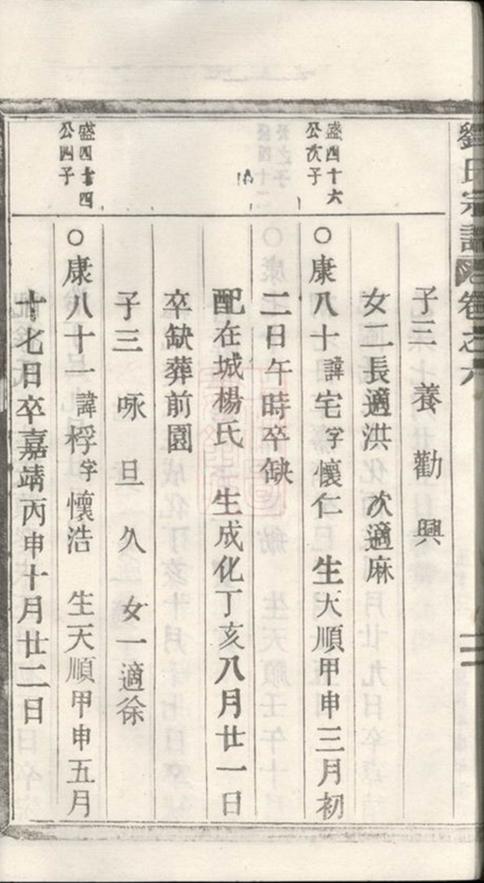 劉氏宗譜 卷之六
子三 養 勸 興
女二長適洪 次適麻
盛四十六
公次子
○康八十諱宅字懷仁 生天順甲申三月初
二日午時卒缺
配在城楊氏 生成化丁亥八月廿一日
卒缺葬前園
子三 咏 旦 久 女一適徐
盛四十四
公四子
○康八十一諱桴字懷浩 生天順甲申五月
十七日卒嘉靖丙申十月廿二日